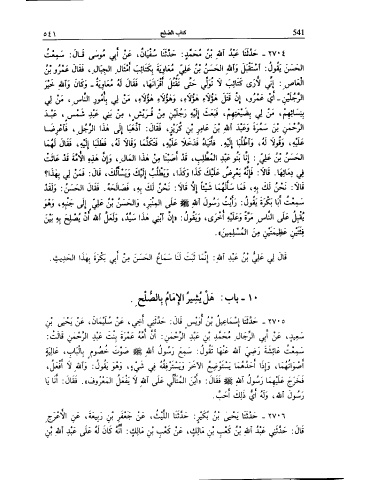 541
كتاب الصُّلح
٥٤١
٢٧٠٤ - حَدَّثَنَا عَبْدُ اللهِ بْنُ مُحَمَّدٍ: حَدَّثَنَا سُفْيَانُ، عَنْ أَبِي مُوسَى قَالَ: سَمِعْتُ
الحَسَنَ يَقُولُ: اسْتَقْبَلَ وَاللهِ الحَسَنُ بْنُ عَلِيٍّ مُعَاوِيَةَ بِكَتَائِبَ أَمْثَالِ الجِبَالِ، فَقَالَ عَمْرُو بْنُ
العَاصِ: إِنِّي لأَرَى كَتَائِبَ لَا تُوَلِّي حَتَّى تَقْتُلَ أَقْرَانَهَا، فَقَالَ لَهُ مُعَاوِيَةُ - وَكَانَ وَاللهِ خَيْرَ
الرَّجُلَيْنِ - أَيْ عَمْرُو، إِنْ قَتَلَ هَؤُلَاءِ هَؤُلَاءِ، وَهَؤُلَاءِ هَؤُلَاءِ، مَنْ لِي بِأُمُورِ النَّاسِ، مَنْ لِي
بِنِسَائِهِمْ، مَنْ لِي بِضَيْعَتِهِمْ، فَبَعَثَ إِلَيْهِ رَجُلَيْنِ مِنْ قُرَيْشٍ، مِنْ بَنِي عَبْدِ شَمْسٍ، عَبْدَ
الرَّحْمٰنِ بْنَ سَمُرَةَ وَعَبْدَ اللهِ بْنَ عَامِرِ بْنِ كُرَيْزٍ، فَقَالَ: اذْهَبَا إِلَى هٰذَا الرَّجُلِ، فَاعْرِضَا
عَلَيْهِ، وَقُولَا لَهُ، وَاطْلُبَا إِلَيْهِ. فَأَتَيَاهُ فَدَخَلَا عَلَيْهِ، فَتَكَلَّمَا وَقَالَا لَهُ، فَطَلَبَا إِلَيْهِ، فَقَالَ لَهُمَا
الحَسَنُ بْنُ عَلِيٍّ: إِنَّا بَنُو عَبْدِ المُطَّلِبِ، قَدْ أَصَبْنَا مِنْ هٰذَا المَالِ، وَإِنَّ هٰذِهِ الأُمَّةَ قَدْ عَاثَتْ
فِي دِمَائِهَا. قَالَا: فَإِنَّهُ يَعْرِضُ عَلَيْكَ كَذَا وَكَذَا، وَيَطْلُبُ إِلَيْكَ وَيَسْأَلُكَ، قَالَ: فَمَنْ لِي بِهٰذَا؟
قَالَا: نَحْنُ لَكَ بِهِ، فَمَا سَأَلَهُمَا شَيْئًا إِلَّا قَالَا: نَحْنُ لَكَ بِهِ، فَصَالَحَهُ. فَقَالَ الحَسَنُ: وَلَقَدْ
سَمِعْتُ أَبَا بَكْرَةَ يَقُولُ: رَأَيْتُ رَسُولَ اللهِ ﷺ عَلَى المِنْبَرِ، وَالحَسَنُ بْنُ عَلِيٍّ إِلَى جَنْبِهِ، وَهُوَ
يُقْبِلُ عَلَى النَّاسِ مَرَّةً وَعَلَيْهِ أُخْرَى، وَيَقُولُ: «إِنَّ ابْنِي هٰذَا سَيِّدٌ، وَلَعَلَّ اللهَ أَنْ يُصْلِحَ بِهِ بَيْنَ
فِئَتَيْنِ عَظِيمَتَيْنِ مِنَ المُسْلِمِينَ».
قَالَ لِي عَلِيُّ بْنُ عَبْدِ اللهِ: إِنَّمَا ثَبَتَ لَنَا سَمَاعُ الحَسَنِ مِنْ أَبِي بَكْرَةَ بِهٰذَا الحَدِيثِ.
١٠ - باب: هَلْ يُشِيرُ الإِمَامُ بِالصُّلْحِ
٢٧٠٥ - حَدَّثَنَا إِسْمَاعِيلُ بْنُ أَبِي أُوَيْسٍ قَالَ: حَدَّثَنِي أَخِي، عَنْ سُلَيْمَانَ، عَنْ يَحْيَى بْنِ
سَعِيدٍ، عَنْ أَبِي الرِّجَالِ مُحَمَّدِ بْنِ عَبْدِ الرَّحْمٰنِ: أَنَّ أُمَّهُ عَمْرَةَ بِنْتَ عَبْدِ الرَّحْمٰنِ قَالَتْ:
سَمِعْتُ عَائِشَةَ رَضِيَ اللهُ عَنْهَا تَقُولُ: سَمِعَ رَسُولُ اللهِ ﷺ صَوْتَ خُصُومٍ بِالْبَابِ، عَالِيَةٍ
أَصْوَاتُهُمَا، وَإِذَا أَحَدُهُمَا يَسْتَوْضِعُ الآخَرَ وَيَسْتَرْفِقُهُ فِي شَيْءٍ، وَهُوَ يَقُولُ: وَاللهِ لَا أَفْعَلُ،
فَخَرَجَ عَلَيْهِمَا رَسُولُ اللهِ ﷺ فَقَالَ: «أَيْنَ المُتَأَلِّي عَلَى اللهِ لَا يَفْعَلُ المَعْرُوفَ». فَقَالَ: أَنَا يَا
رَسُولَ اللهِ، وَلَهُ أَيُّ ذٰلِكَ أَحَبَّ.
٢٧٠٦ - حَدَّثَنَا يَحْيَى بْنُ بُكَيْرٍ: حَدَّثَنَا اللَّيْثُ، عَنْ جَعْفَرِ بْنِ رَبِيعَةَ، عَنِ الأَعْرَجِ
قَالَ: حَدَّثَنِي عَبْدُ اللهِ بْنُ كَعْبِ بْنِ مَالِكٍ، عَنْ كَعْبِ بْنِ مَالِكٍ: أَنَّهُ كَانَ لَهُ عَلَى عَبْدِ اللهِ بْنِ